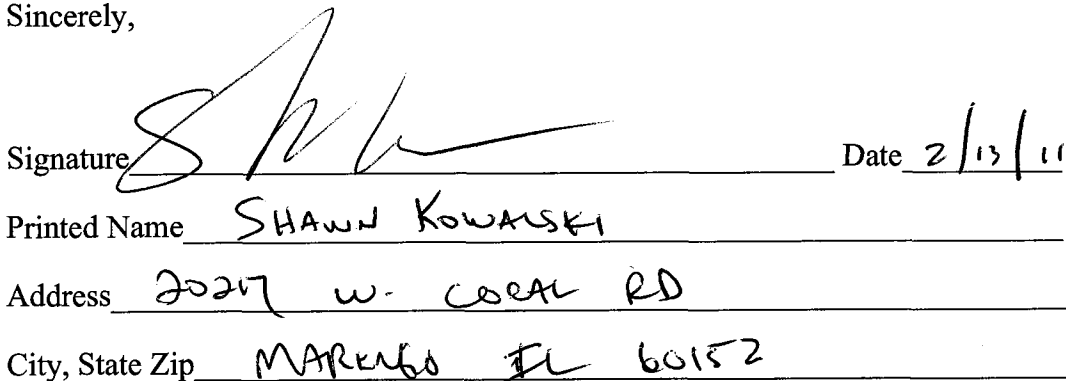 Sincerely,
Signature Date 2/13/11
Printed Name SHAWN KOWALSKI
Address W. CORAL RD
City, State Zip MARENGO IL 60152